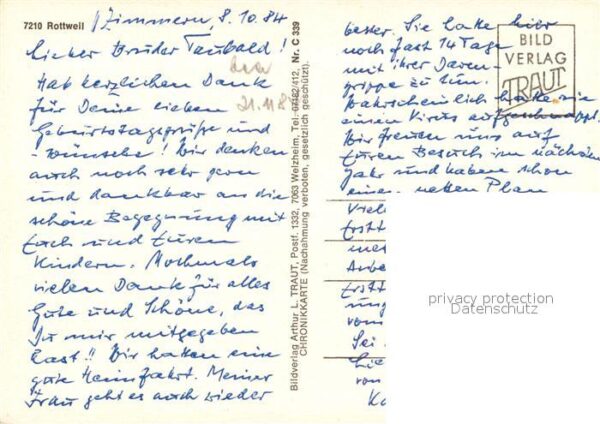 7210 Rottweil
Zimmern, 8.10.84
Lieber Bruder Taubald!
Hab herzlichen Dank
für Deine lieben
Geburtstagsgrüße und
wünsche! Wir denken
auch noch sehr gern
und dankbar an die
schöne Begegnung mit
Euch und Euren
Kindern. Nochmals
vielen Dank für alles
Gute und Schöne, das
Du mir mitgegeben
hast!! Wir hatten eine
gute Heimfahrt. Meiner
Frau geht es auch wieder
Bildverlag Arthur L. TRAUT, Postf. 1332, 7063 Welzheim, Tel. 07182/412, Nr. C 339
CHRONIKKARTE (Nachahmung verboten, gesetzlich geschützt).
besser. Sie hatte hier
noch fast 14 Tage
mit ihrer Darm-
grippe zu tun.
Wahrscheinlich hatte sie
einen Virus aufgeschnappt.
Wir freuen uns auf
Euren Besuch im nächsten
Jahr und haben schon
einen netten Plan
BILD
VERLAG
TRAUT
privacy protection
Datenschutz